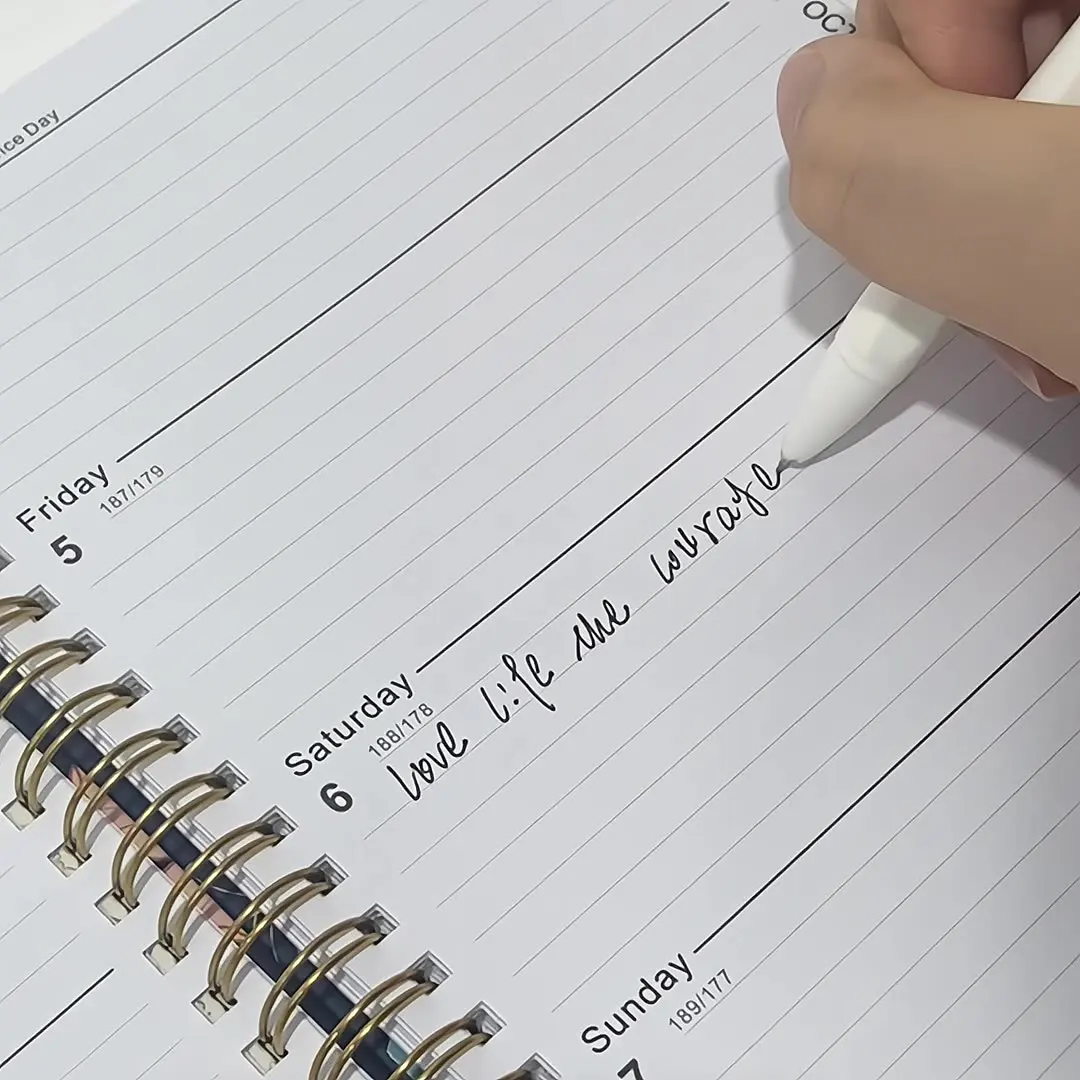 Friday
187/179
5
Saturday
188/178
6
love life the courage
Sunday
189/177
7